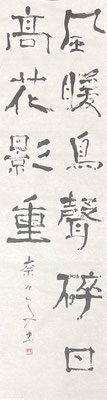 風暖鳥聲碎日
高花影重